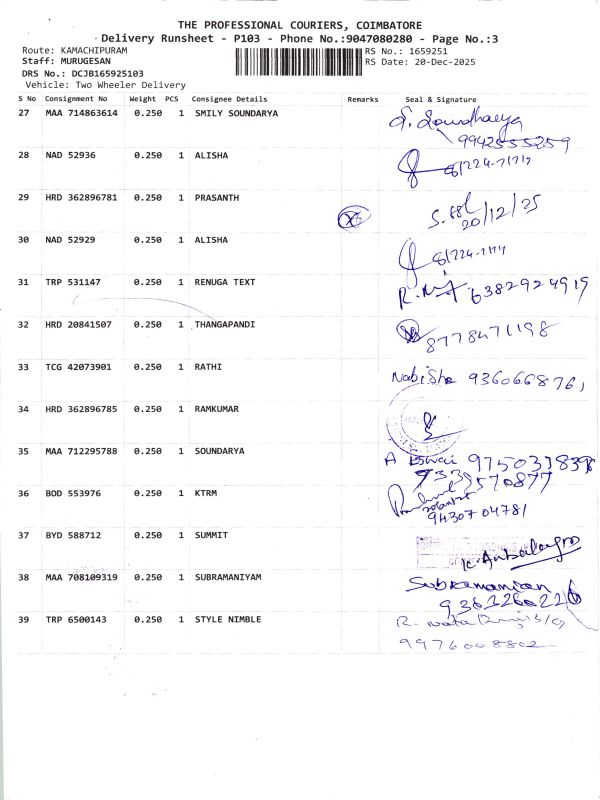 THE PROFESSIONAL COURIERS, COIMBATORE
Delivery Runsheet - P103 - Phone No.:9047080280 - Page No.:3
Route: KAMACHIPURAM RS No.: 1659251
Staff: MURUGESAN RS Date: 20-Dec-2025
DRS No.: DCJB165925103
Vehicle: Two Wheeler Delivery
S No Consignment No Weight PCS Consignee Details Remarks Seal & Signature
27 MAA 714863614 0.250 1 SMILY SOUNDARYA
9942555259
28 NAD 52936 0.250 1 ALISHA
29 HRD 362896781 0.250 1 PRASANTH
20/12/25
30 NAD 52929 0.250 1 ALISHA
31 TRP 531147 0.250 1 RENUGA TEXT
6382924919
32 HRD 20841507 0.250 1 THANGAPANDI
8778471198
33 TCG 42073901 0.250 1 RATHI
34 HRD 362896785 0.250 1 RAMKUMAR
35 MAA 712295788 0.250 1 SOUNDARYA
36 BOD 553976 0.250 1 KTRM
9430704781
37 BYD 588712 0.250 1 SUMMIT
38 MAA 708109319 0.250 1 SUBRAMANIYAM
Subramanian
39 TRP 6500143 0.250 1 STYLE NIMBLE
9976008802